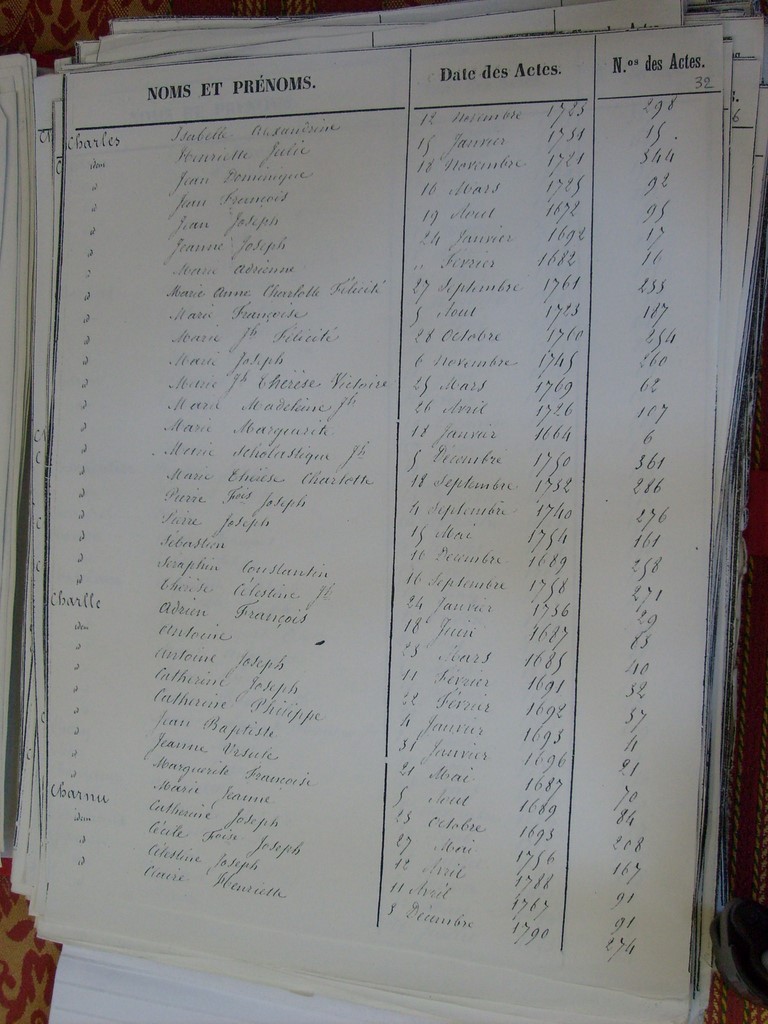 NOMS ET PRÉNOMS. Date des Actes. N.os des Actes.
32
Charles Isabelle Alexandrine 12 Novembre 1725 298
idem Henriette Julie 15 Janvier 1751 15.
d Jean Dominique 18 Novembre 1721 344
d Jean François 16 Mars 1725 92
d Jean Joseph 19 Aout 1672 95
d Jeanne Joseph 24 Janvier 1692 17
d Marie Adrienne " Fevrier 1682 16
d Marie Anne Charlotte Félicité 27 Septembre 1761 233
d Marie Françoise 5 Aout 1723 187
d Marie Jh Félicité 28 Octobre 1760 254
d Marie Joseph 6 Novembre 1745 260
d Marie Jh Thérèse Victoire 25 Mars 1769 62
d Marie Madeleine Jh 26 Avril 1726 107
d Marie Marguerite 18 Janvier 1664 6
d Marie Scholastique Jh 5 Décembre 1750 361
d Marie Thérèse Charlotte 18 Septembre 1752 286
d Pierre Fois Joseph 4 Septembre 1740 276
d Pierre Joseph 15 Mai 1754 161
d Sébastien 16 Décembre 1689 258
d Séraphin Constantin 16 Septembre 1758 271
d Thérèse Célestine Jh 24 Janvier 1756 29
Charlle Adrien François 18 Juin 1687 63
idem Antoine 23 Mars 1685 40
d Antoine Joseph 11 Février 1691 32
d Catherine Joseph 22 Février 1692 37
d Catherine Philippe 4 Janvier 1693 4
d Jean Baptiste 31 Janvier 1696 21
d Jeanne Ursule 21 Mai 1687 70
d Marguerite Françoise 5 Aout 1689 84
d Marie Jeanne 23 Octobre 1693 208
Charnu Catherine Joseph 27 Mai 1756 167
idem Cécile Foise Joseph 12 Avril 1788 91
d Célestine Joseph 11 Avril 1767 91
d Claire Henriette 3 Décembre 1790 274